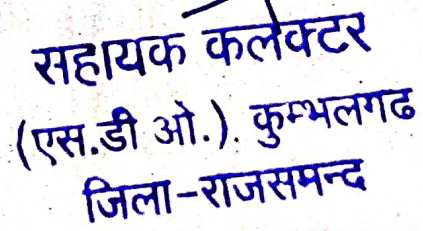 सहायक कलेक्टर
(एस.डी ओ.). कुम्भलगढ
जिला-राजसमन्द